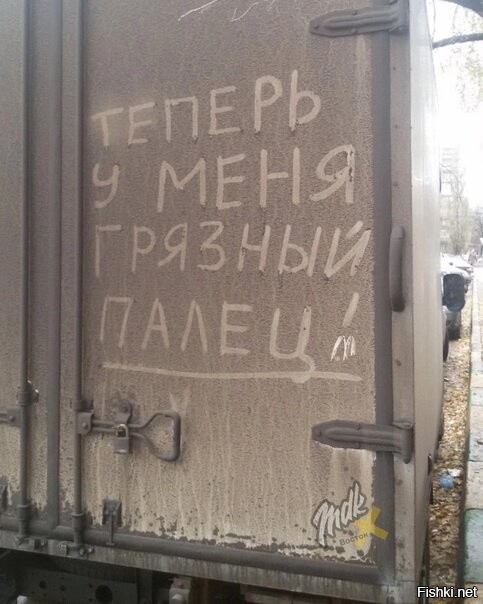 ТЕПЕРЬ
У МЕНЯ
ГРЯЗНЫЙ
ПАЛЕЦ!
mdk
Восток
Fishki.net